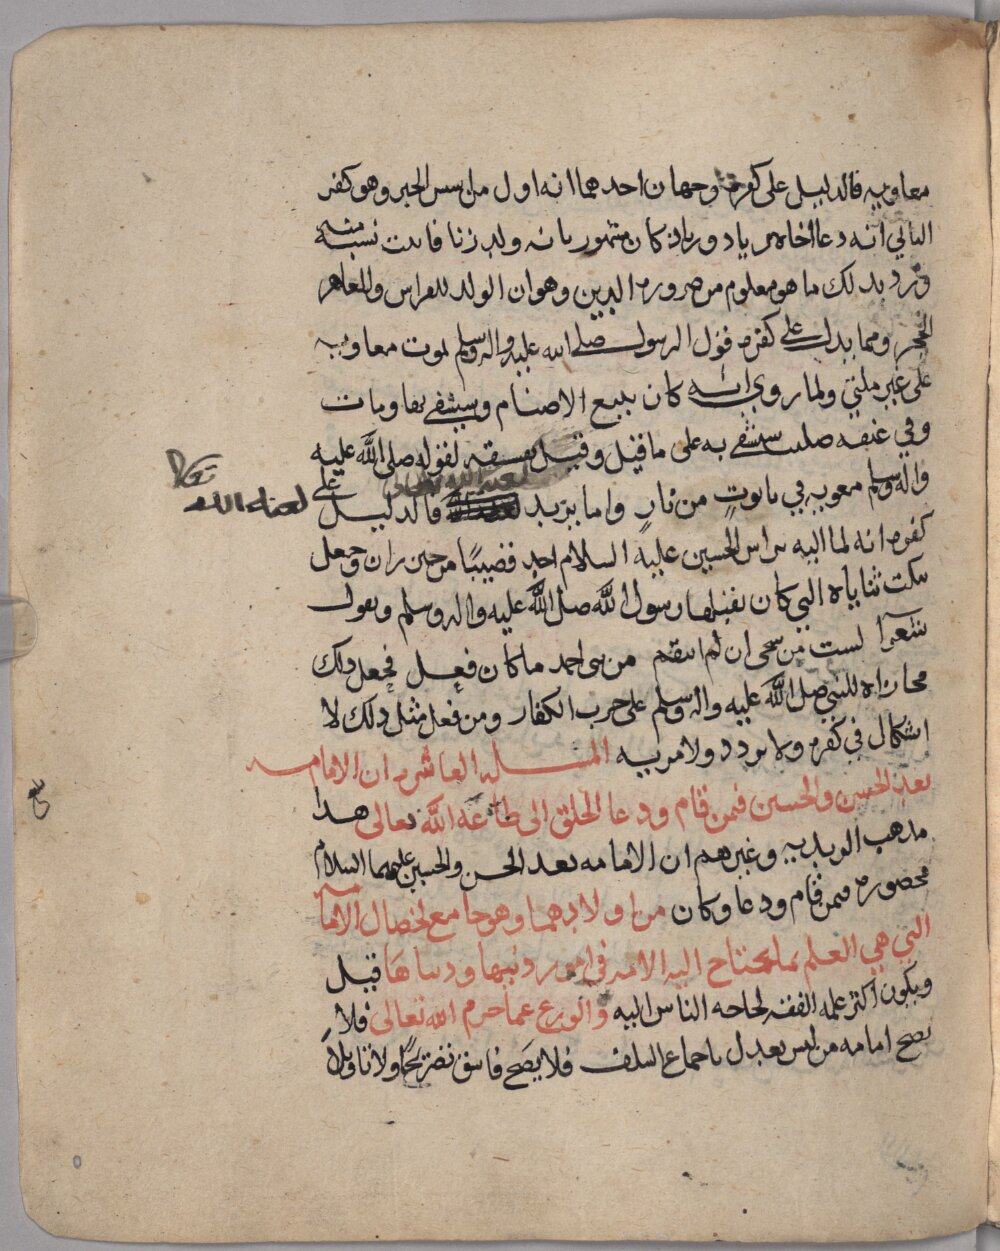 معاويه فالدليل على كفره وجهان احدهما انه اول من اسس الجبر وهو كفر
الثاني انه دعا اخاه زياد وزياد كان مشهور بانه ولد زنا فاثبت نسبه منه
ورد بذلك ما هو معلوم من ضرورة الدين وهو ان الولد للفراش وللعاهر
الحجر ومما يدل على كفره قول الرسول صلى الله عليه واله وسلم يموت معاويه
على غير ملتي ولما روي انه كان يبيع الاصنام ويستشفي بها ومات
وفي عنقه صليب يستشفي به على ما قيل وقيل بفسقه لقوله صلى الله عليه
واله وسلم معويه في تابوت من نار واما يزيد لعنه الله تعالى فالدليل على
لعنه الله
كفره انه لما اليه براس الحسين عليه السلام اخذ قضيبا من خيزران وجعل
ينكت ثناياه التي كان يقبلها رسول الله صلى الله عليه واله وسلم ويقول
شعرا لست من ان لم انتقم من بني احمد ما كان فعل فجعل ذلك
مجازاه للنبي صلى الله عليه واله وسلم على حرب الكفار ومن فعل مثل ذلك لا
اشكال في كفره ولا تردد ولا مريه المسله العاشره ان الامامه
بعد الحسن والحسين فيمن قام ودعا الخلق الى طاعة الله تعالى هذا
مذهب الزيديه وغيرهم ان الامامه بعد الحسن والحسين عليهما السلام
محصوره فيمن قام ودعا وكان من اولادهما وهو جامع لخصال الامامه
التي هي العلم بما تحتاج اليه الامه في امور دينها ودنياها قيل
ويكون اكثر علمه الفقه لحاجه الناس اليه والورع عما حرم الله تعالى فلا
تصح امامه من ليس بعدل باجماع السلف فلا يصح فاسق تصريحا ولا تاويلا